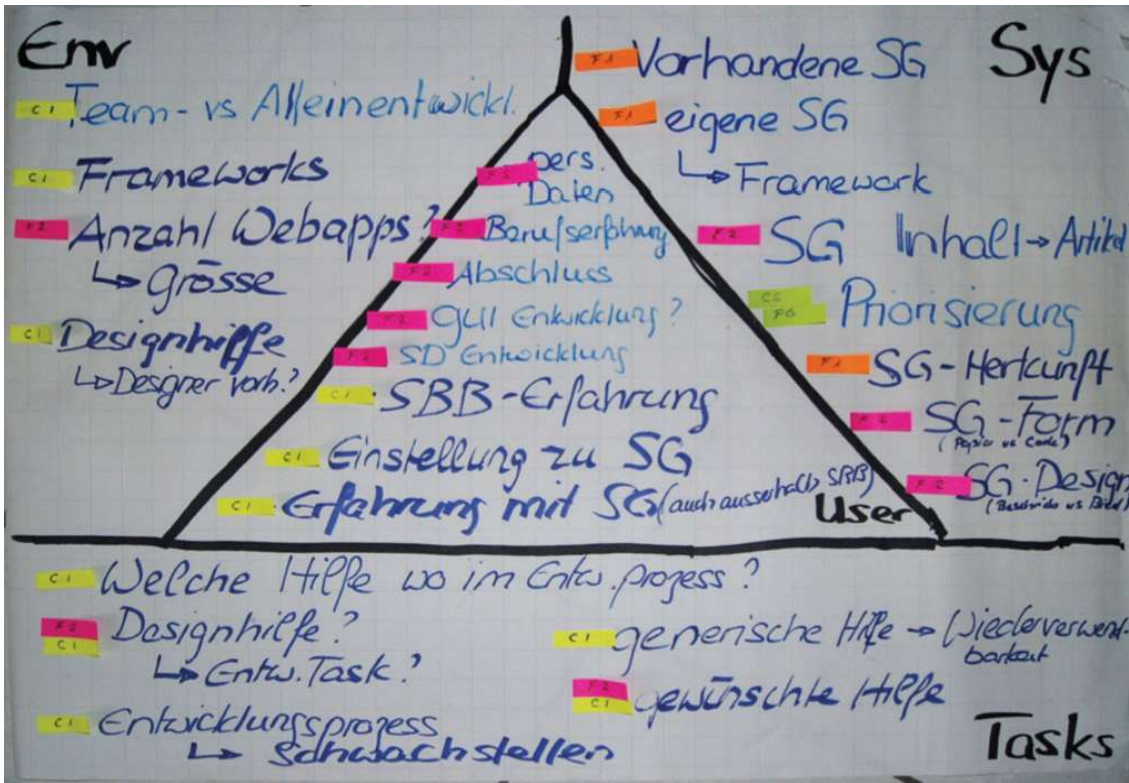 Env
C1 Team- vs Alleinentwickl.
C1 Frameworks
F2 Anzahl Webapps?
↳ Grösse
C1 Designhilfe
↳ Designer vorh.?
F2 pers.
Daten
F2 Berufserfahrung
F2 Abschluss
F2 GUI Entwicklung?
F2 SD Entwicklung
C1 SBB-Erfahrung
C1 Einstellung zu SG
C1 Erfahrung mit SG (auch ausserhalb SBB)
User
Sys
F1 Vorhandene SG
F1 eigene SG
↳ Framework
F2 SG Inhalt → Artikel
C6
F6
Priorisierung
F1 SG-Herkunft
F2 SG-Form
(Papier vs Code)
F2 SG-Design
C1 Welche Hilfe wo im Entw.prozess?
F2
C1
Designhilfe?
↳ Entw.Task?
C1 Entwicklungsprozess
↳ Schwachstellen
C1 generische Hilfe → Wiederverwend-
barkeit
F2
C1
gewünschte Hilfe
Tasks